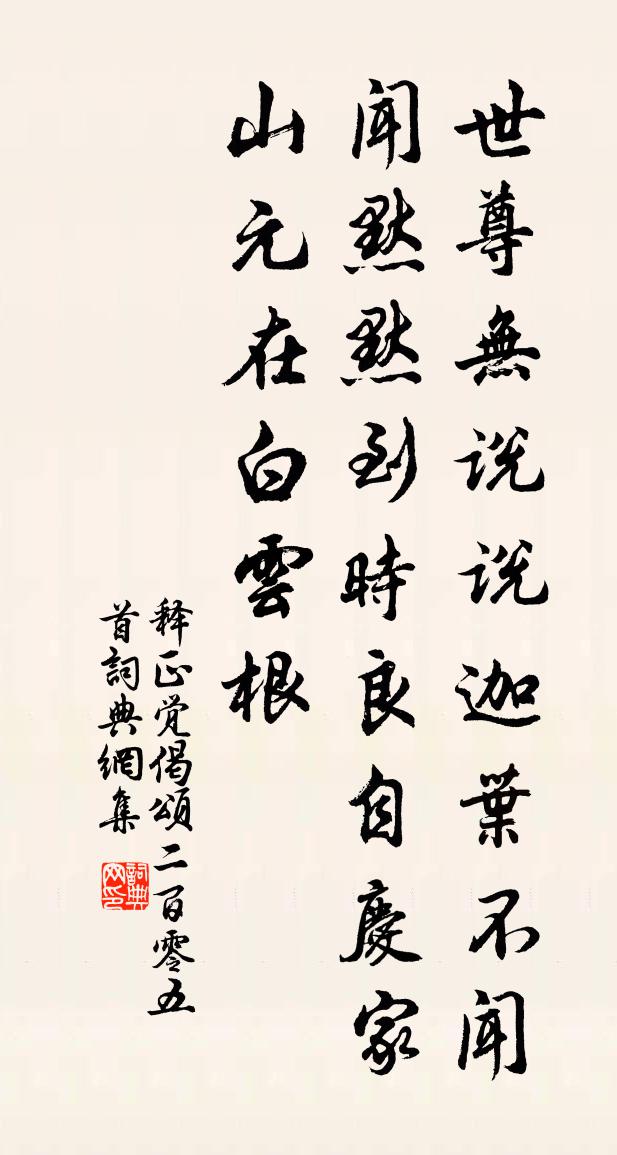 世尊無说说迦葉不聞
聞默默到時良自慶家
山元在白雲根
释正觉偈頌二百零五
首詞典網集
詞典
网印